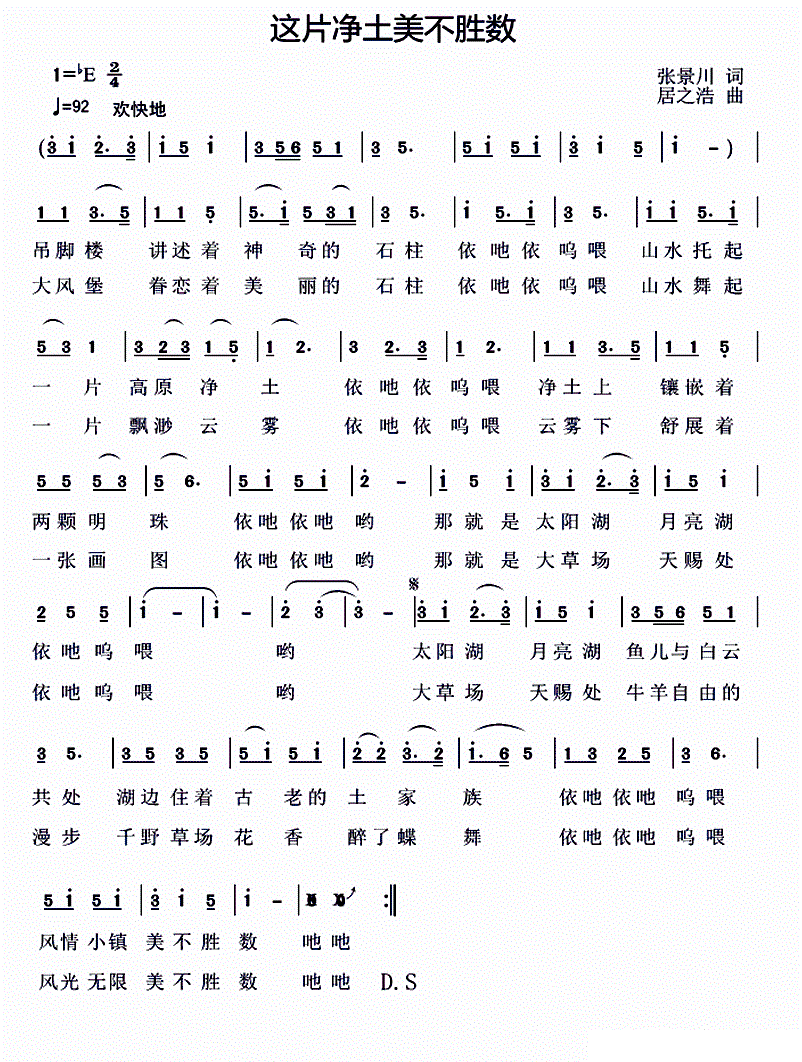 这片净土美不胜数
1=♭E 2/4
张景川 词
♩=92 欢快地
居之浩 曲
(3̇ 1̇ 2̇. 3̇ | 1̇ 5 1̇ | 3 5 6 5 1 | 3 5. | 5 1̇ 5 1̇ | 3̇ 1̇ 5 | 1̇ - ) |
1 1 3. 5̣ | 1 1 5̣ | 5. 1̇ 5 3 1 | 3 5. | 1̇ 5. 1̇ | 5 5. | 5 1̇ 2̇. 1̇ |
吊脚楼 讲述着 神 奇的 石柱 依吔依呜喂 山水托起
大风堡 眷恋着 美 丽的 石柱 依吔依呜喂 山水舞起
5 3 1 | 3 2 3 1 5̣ | 1 2. | 3 2. 3 | 1 2. | 1 1 3. 5 | 1 1 5̣ |
一 片 高原 净 土 依吔依呜喂 净土上 镶嵌着
一 片 飘渺 云 雾 依吔依呜喂 云雾下 舒展着
5 5 5 3 | 5 6. | 5 1̇ 5 1̇ | 2̇ - | 1̇ 5 1̇ | 3̇ 1̇ 2̇. 3̇ | 1̇ 5 1̇ |
两颗明 珠 依吔依吔哟 那就是太阳湖 月亮湖
一张画 图 依吔依吔哟 那就是大草场 天赐处
2 5 5 | 1̇ - | 1̇ - | 2̇ 3̇ | 3̇ - | 𝄋 3̇ 1̇ 2̇. 3̇ | 1̇ 5 1̇ | 3 5 6 5 1 |
依吔呜喂 哟 太阳湖 月亮湖 鱼儿与白云
依吔呜喂 哟 大草场 天赐处 牛羊自由的
3 5. | 3 5 3 5 | 5 1̇ 5 1̇ | 2̇ 2̇ 3̇. 2̇ | 1̇. 6 5 | 1 3 2 5 | 3 6. |
共处 湖边住着 古 老的 土 家 族 依吔依吔 呜喂
漫步 千野草场 花 香 醉了蝶 舞 依吔依吔 呜喂
5 1̇ 5 1̇ | 3̇ 1̇ 5 | 1̇ - | :‖
风情小镇 美不胜 数 吔吔
风光无限 美不胜 数 吔吔 D.S